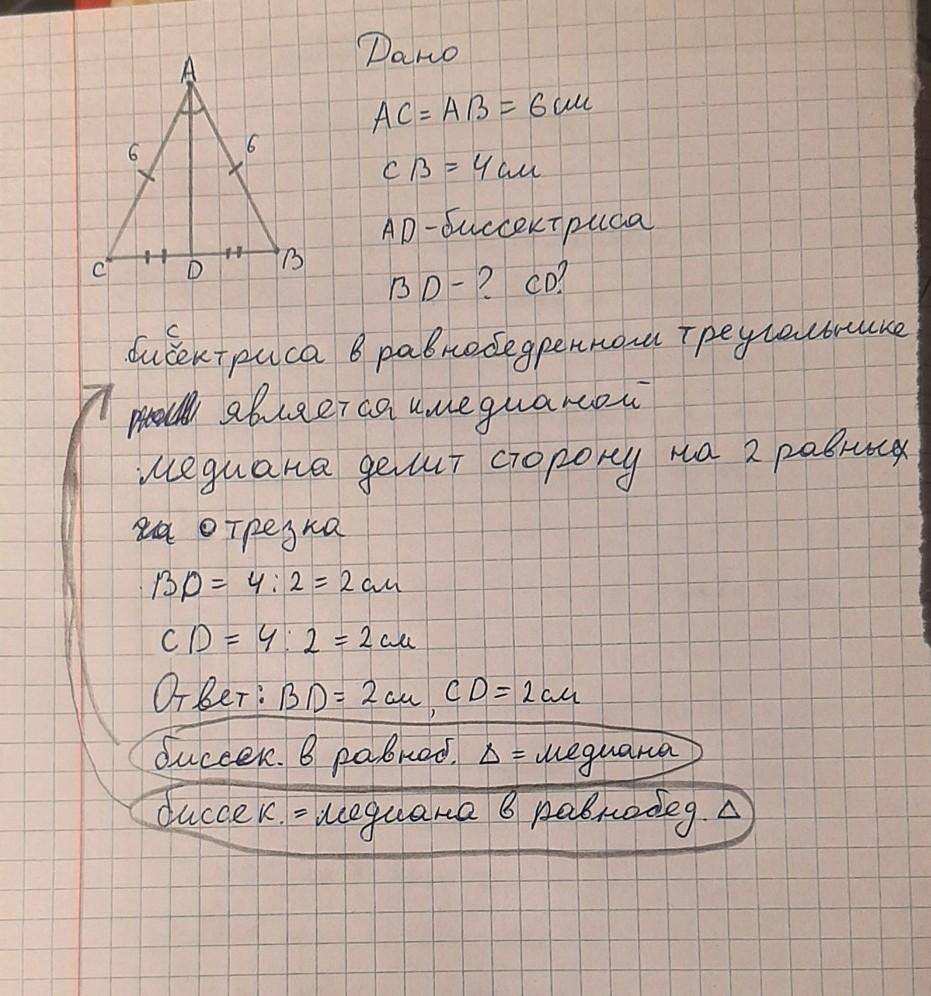 A
6
6
C
D
B
Дано
AC = AB = 6 см
CB = 4 см
AD - биссектриса
BD - ? CD?
биссектриса в равнобедренном треугольнике
является и медианой
медиана делит сторону на 2 равных
отрезка
BD = 4 : 2 = 2 см
CD = 4 : 2 = 2 см
Ответ: BD = 2 см, CD = 2 см
биссек. в равноб. Δ = медиана
биссек. = медиана в равнобед. Δ